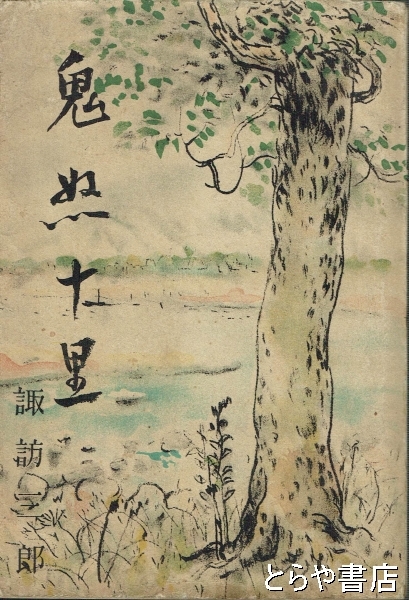 鬼怒十里
諏訪三郎
とらや書店